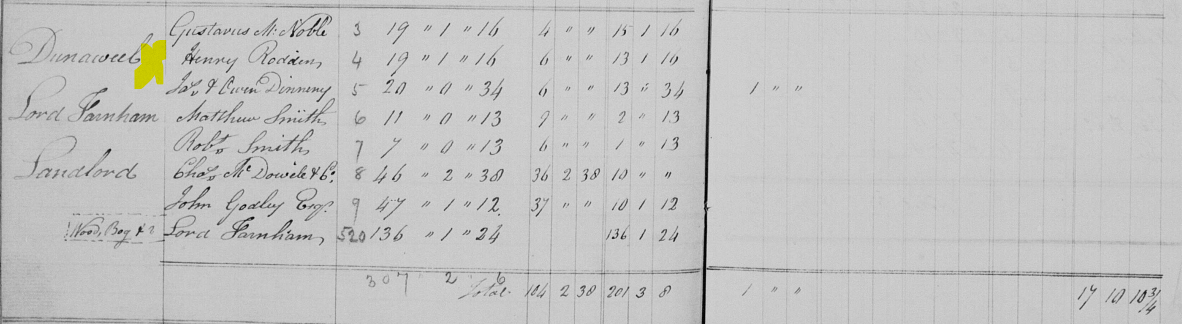 Gustavus McNoble 3 19 " 1 " 16 4 " " 15 1 16
Dunaweel Henry Roddens 4 19 " 1 " 16 6 " " 13 1 16
Jas. & Owen Dinneny 5 20 " 0 " 34 6 " " 13 " 34 1 " "
Lord Farnham Matthew Smith 6 11 " 0 " 13 9 " " 2 " 13
Robt. Smith 7 7 " 0 " 13 6 " " 1 " 13
Landlord Chas. McDowele & Co. 8 46 " 2 " 38 36 2 38 10 " "
John Godley Esqr. 9 47 " 1 " 12 37 " " 10 1 12
Wood, Bog & Lord Farnham 520 136 " 1 " 24 136 1 24
307 2 6
Total 104 2 38 201 3 8 1 " " 17 10 10 3/4